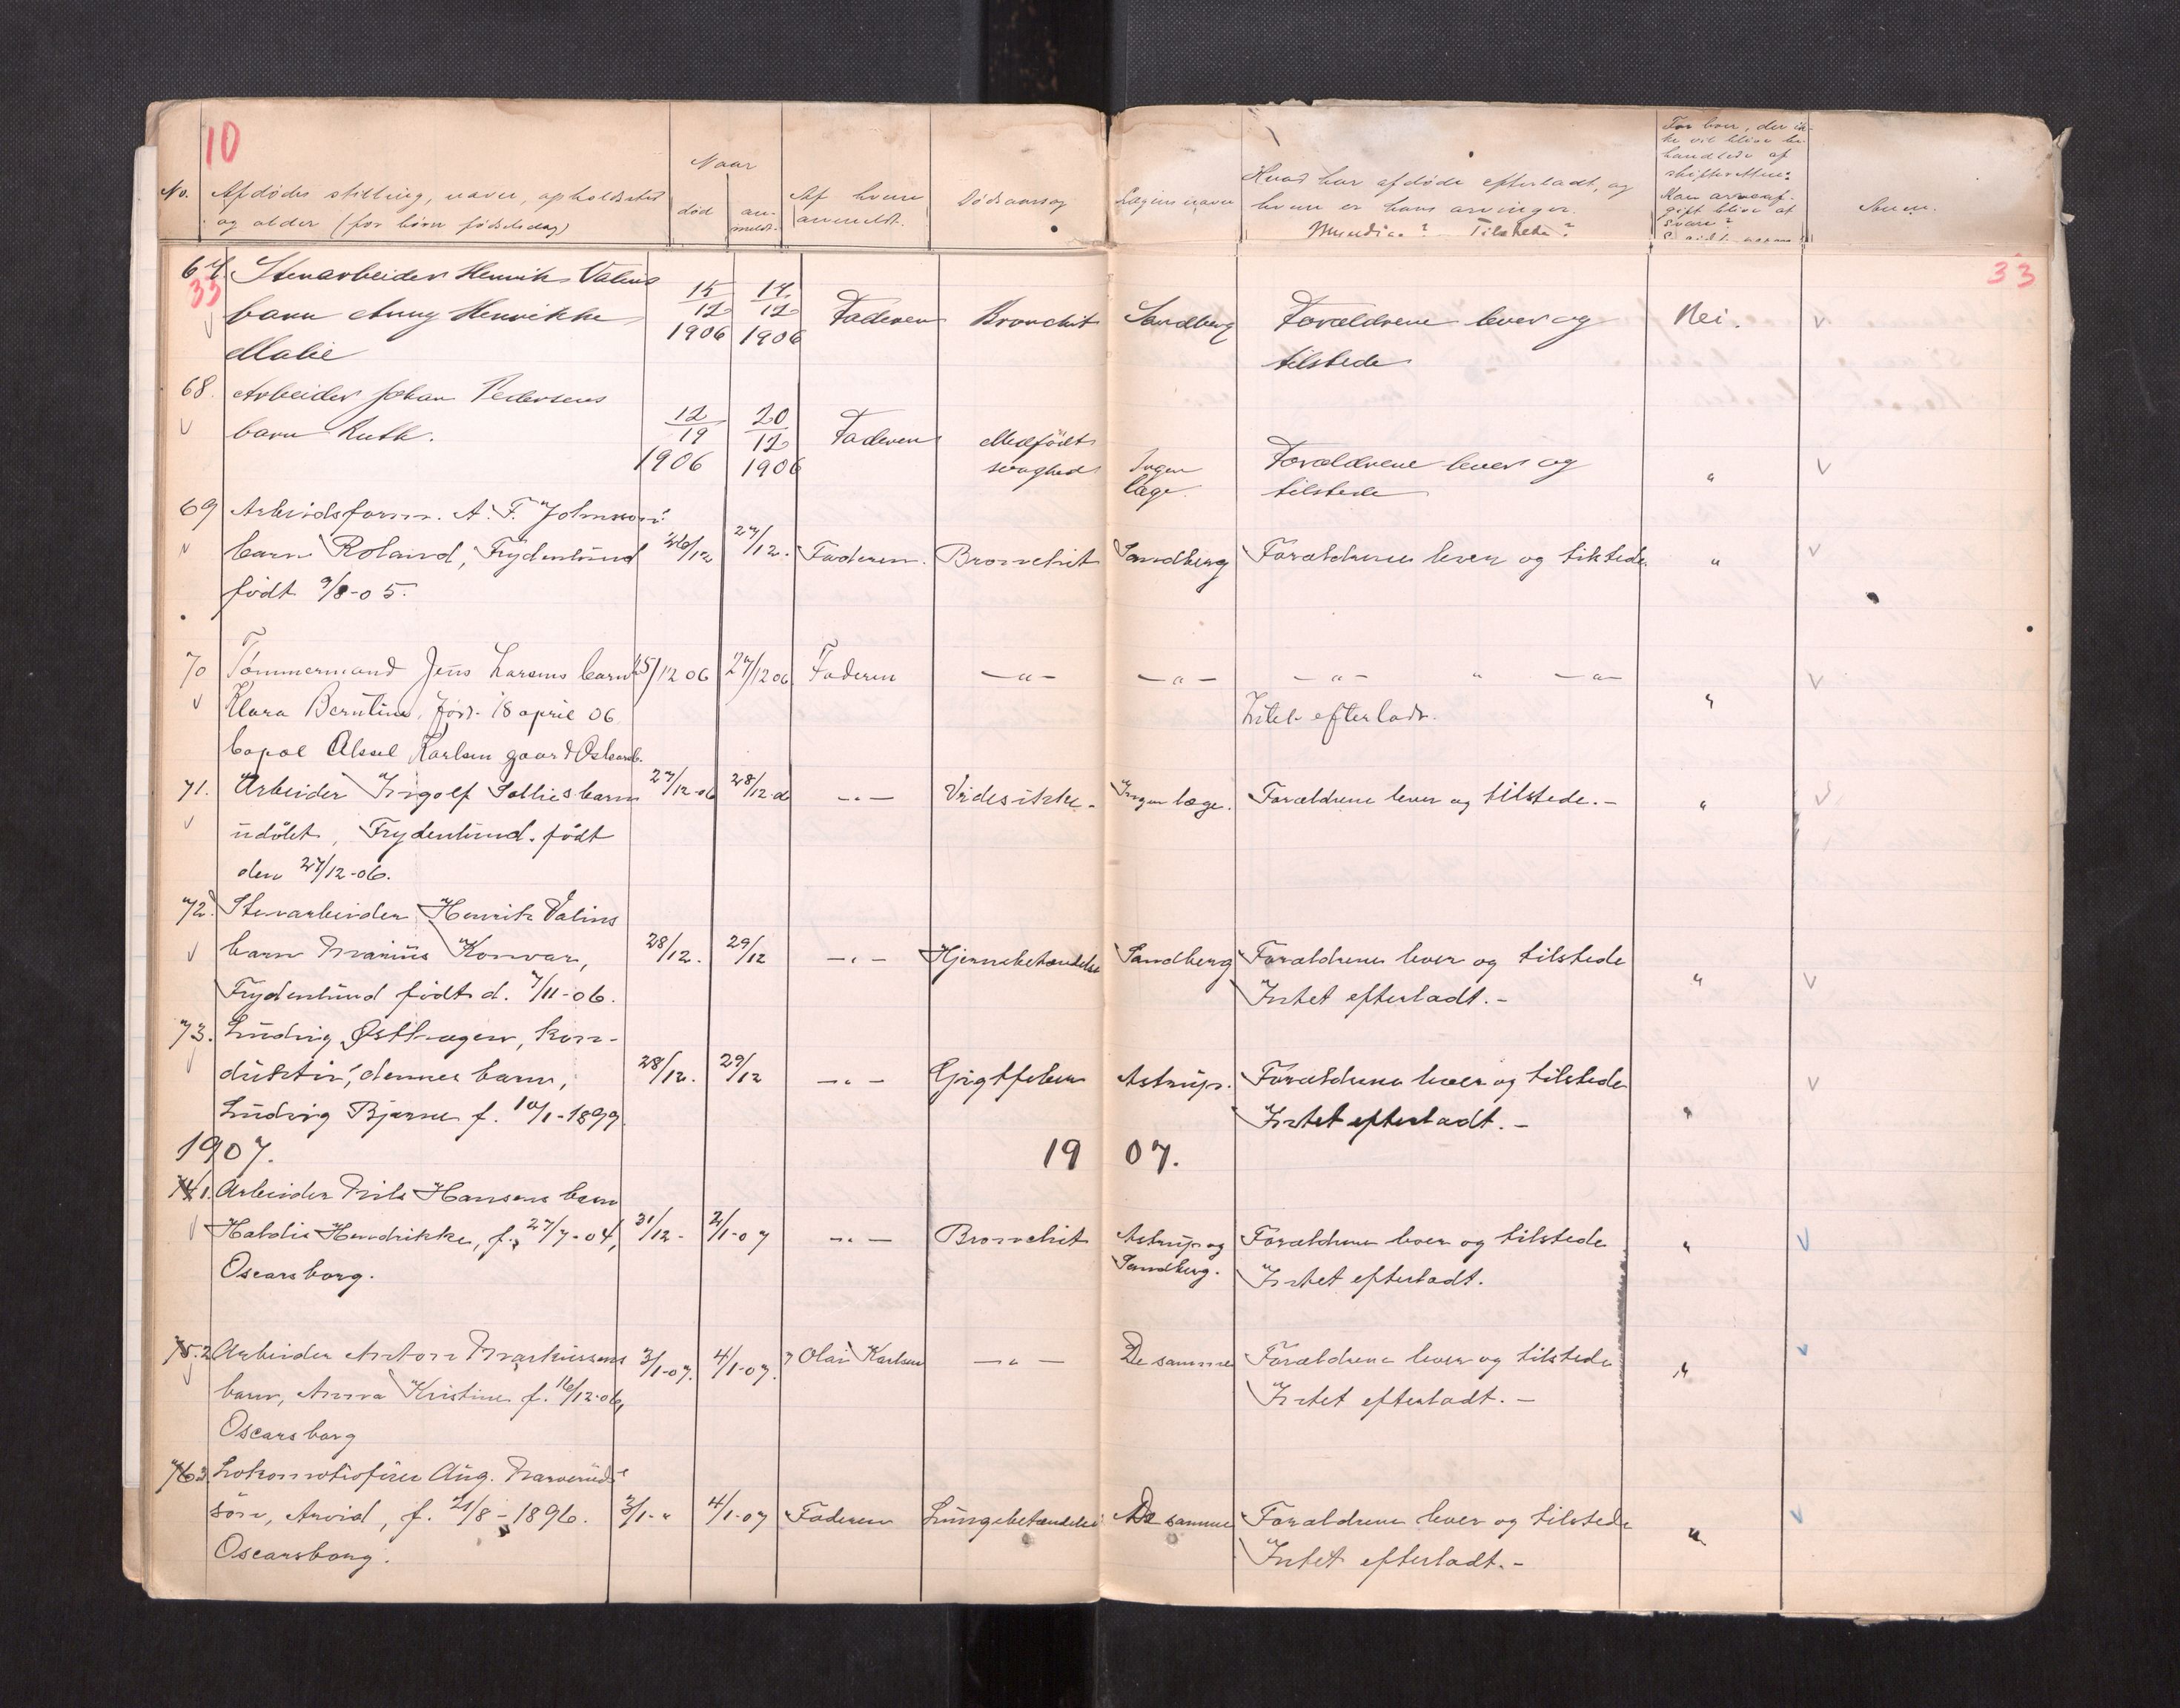 10
No.
Afdødes stilling, navn, opholdssted
og alder (for børn fødselsdag)
Naar
død
an-
meldt.
Af hvem
anmeldt.
Dødsaarsag
Lægens navn
Hvad har afdøde efterladt, og
hvem er hans arvinger.
Myndige? Tilstede?
For boer, der ik-
ke vil blive be-
handlede af
skifteretten:
Kan arveaf-
gift blive at
svare?
Anm.
33
67 Stenarbeider Henrik Valins
33
barn Anny Henrikke
Malie
15/12 1906
17/12 1906
Faderen
Bronchit
Sandberg
Forældrene lever og
tilstede
Nei.
68. Arbeider Johan Pedersens
barn Ruth.
12/19 1906
20/12 1906
Faderen
Medfödt
svaghed
Ingen
læge.
Forældrene lever og
tilstede
"
69 Arbeidsform. A. F. Johnsons
barn Roland, Frydenlund
født 9/8-05.
26/12
27/12.
Faderen.
Bronchit
Sandberg
Forældrene lever og tilstede.
"
70 Tømmermand Jens Larsens barn
Klara Berntine, född 18 april 06
25/12 06
27/12 06
Faderen
—"—
—"—
—"— " —"—
Intet efterladt.
"
71. Arbeider Ingolf Sollies barn
udøbt, Frydenlund. født
den 27/12-06.
27/12-06
28/12-06
—"—
Vides ikke.
Ingen læge.
Forældrene lever og tilstede.-
"
72. Stenarbeider Henrik Valins
barn Marius Konvar,
Frydenlund født d. 7/11-06.
28/12.
29/12
—"—
Hjernebetændelse
Sandberg
Forældrene lever og tilstede
Intet efterladt.-
"
73. Ludvig Østhagen, kon-
duktør, dennes barn,
Ludvig Bjarne f. 10/1-1899
28/12.
29/12
—"—
Gigtfeber
Astrup.
Forældrene lever og tilstede
Intet efterladt.-
"
1907.
1907.
74 1. Arbeider Nils Hansens barn
Haldis Hendrikke, f. 27/7-04,
Oscarsborg.
31/12-
2/1-07
—"—
Bronchit
Astrup og
Sandberg.
Forældrene lever og tilstede
Intet efterladt.
"
75. 2 Arbeider Anton Markussens
barn, Anna Kristine f. 16/12-06,
Oscarsborg
3/1-07.
4/1-07.
Olai Karlsen
—"—
De samme
Forældrene lever og tilstede
Intet efterladt.-
"
76 3. Lokomotivfører Aug. Narveruds
søn, Arvid, f. 21/8-1896.
Oscarsborg.
3/1-"
4/1-07
Faderen
Lungebetændelse
De samme
Forældrene lever og tilstede
Intet efterladt.-
"